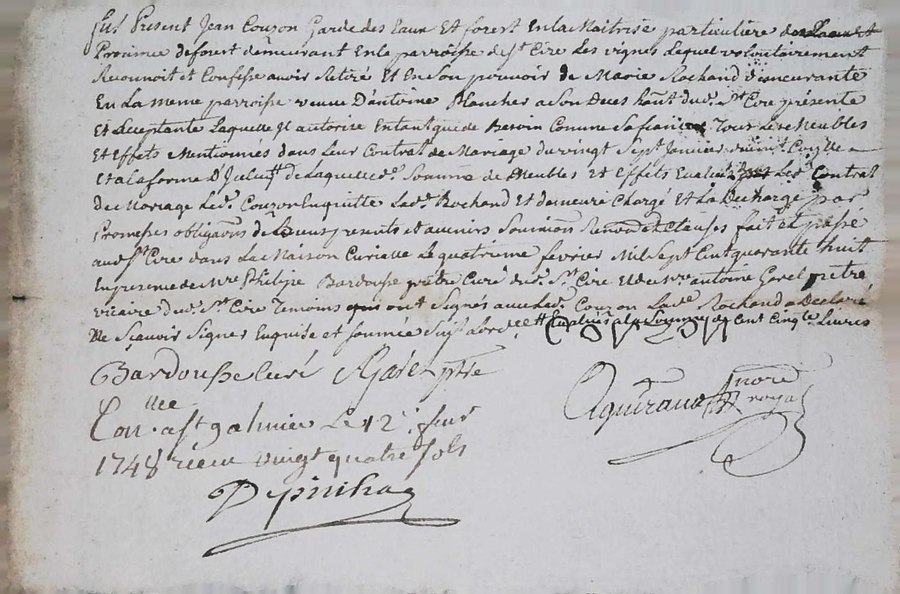 fut Présent Jean Couzon Garde des Eaux Et forest En la Maitrise particulière de
Province de forest demeurant En la parroisse de St Cire Les vignes Lequel volontairement
Reconnoit et Confesse avoir Retiré Et En Son pouvoir de Marie Rochand demeurante
En La meme parroisse veuve D'antoine Blancher a Son Deces hant dud. St Cire présente
Et acceptante Laquelle Il autorise Entant que de Besoin Comme Sa fiancée Tous Les Meubles
Et Effets Mentionnés dans Leur Contrat de Mariage du vingt Sept Janvier
Et a la forme D'Iceluy de Laquelle de. Somme de Meubles Et Effets Led. Contrat
De Mariage Led. Couzon En quitte Lad. Rochand et demeure Chargé Et La Decharge par
Promesses obligaons de Biens presents et avenirs Soumions Renvoons et Clauses fait et passé
aud. St Cire dans La Maison Curialle Le quatrieme fevrier Mil Sept Cent quarante huit
En presence de Mre Philipe Bardousse prêtre Curé dud. St Cire Et de Mre antoine Garel prêtre
vicaire dud. St Cire Temoins qui ont Signés avec Led. Couzon Lad. Rochand a Declaré
Ne Sçavoir Signer Enquise et Sommée a la Somme de Cent Cinqte Livres
Couzon
Bardousse Curé Garel ptre
Aguiraud nore royal
Conllee a St galmier Le 12e fevr
1748 receu vingt quatre Sols
Depinhac